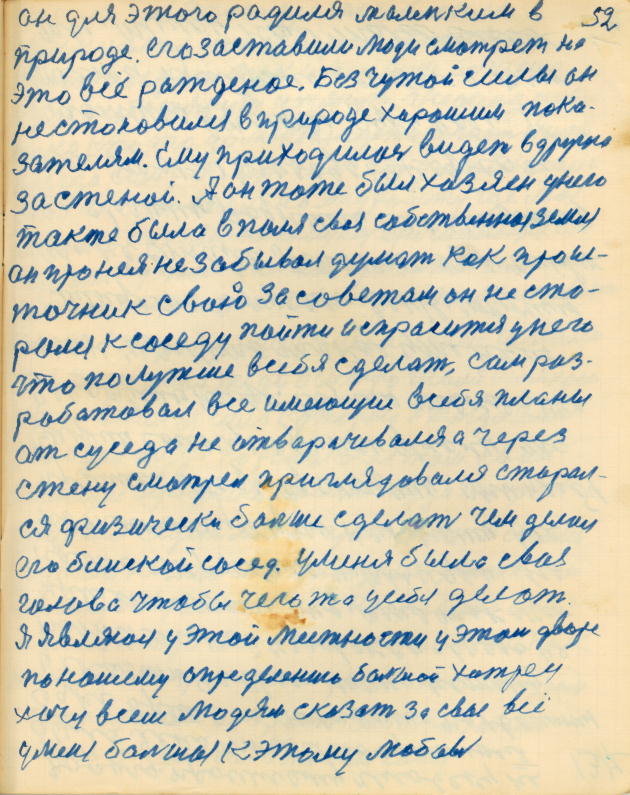 он для этого радился маленким в 52
природе. Его заставили люди смотрет на
это всё рожденое. Без чужой силы он
нестоновился в природе харошим пока-
зателям. Ему приходилося видет вдругова
за стеной. А он тоже был хазяен унего
также была в поля своя собственноя земля
он пронея не забывал думат как
точник свой За советам он не ста-
рался к соседу пойти и спраситя унего
что полутше всебя сделат, сам раз-
работовал все имеющие всебя планы
от суседа не отварачивался а через
стену смотрел приглядовался старал-
ся физически болше сделат чем делал
его блиской сосед. Уменя была своя
голова чтобы чегожа усебя делат.
Я являюся у этой местности у этом дворе
по нашему определению болшой хитрец
хочу всем людям сказат за своя всё
уменя болшая к этому любов